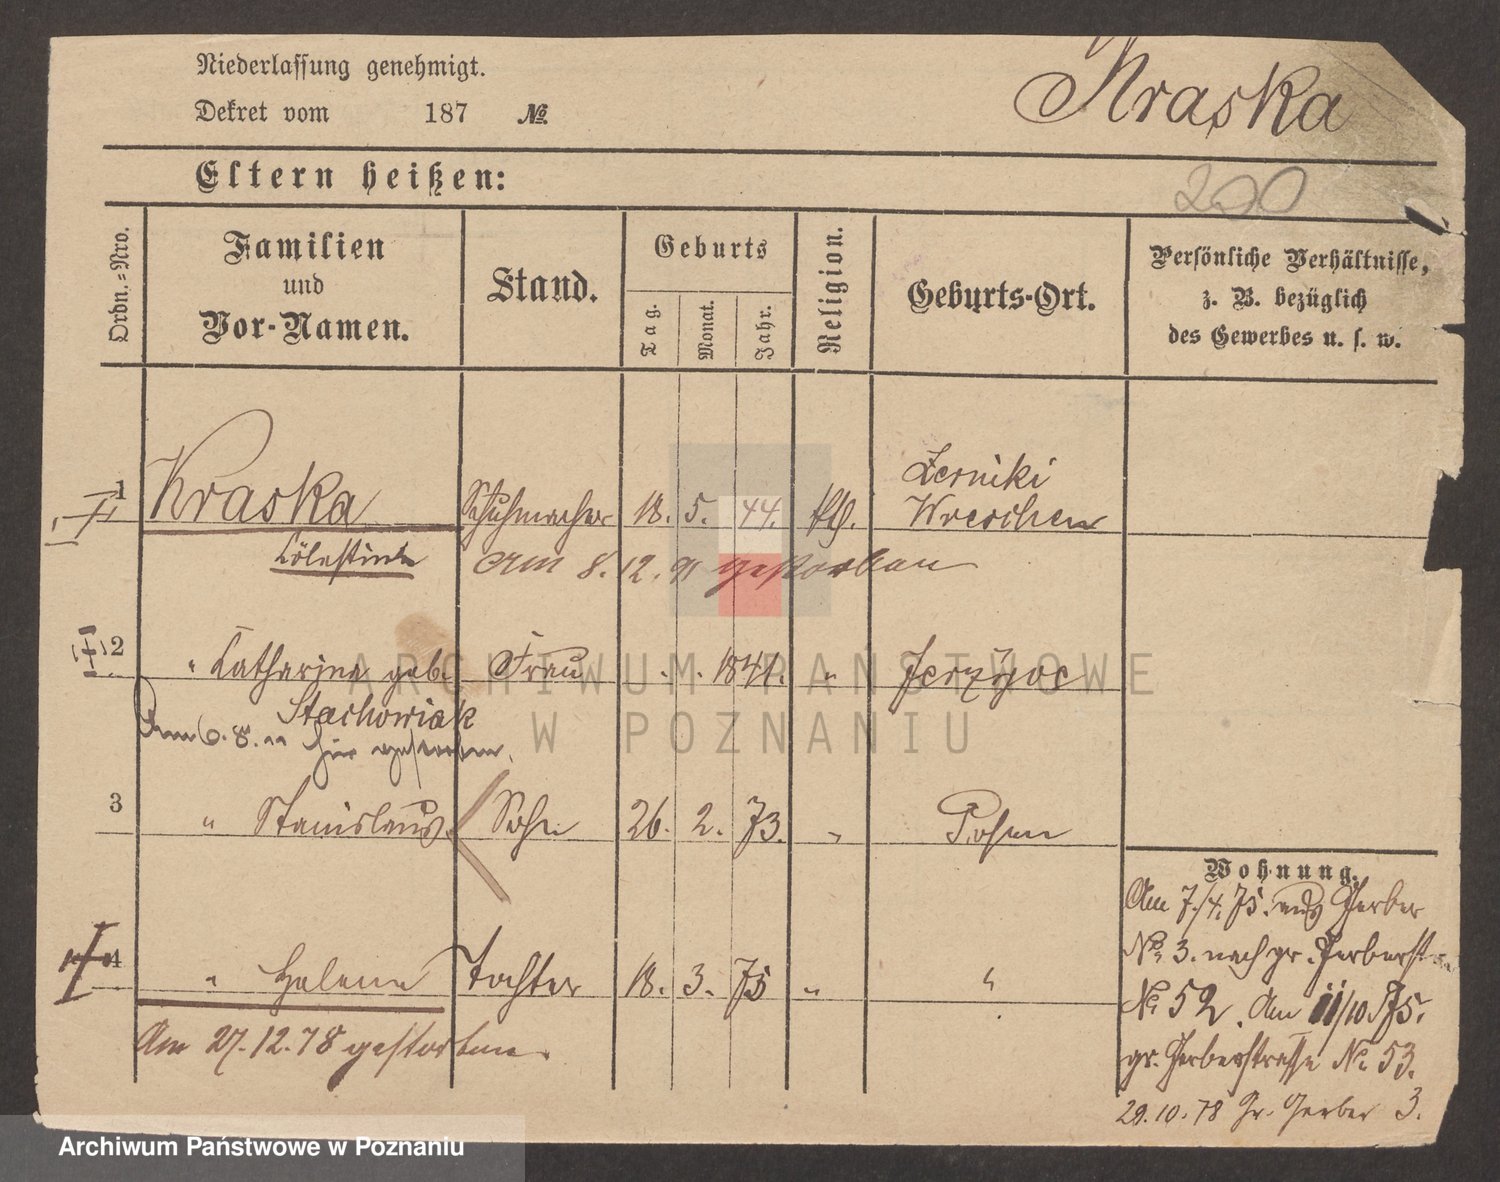 Niederlassung genehmigt.
Dekret vom 187 №
Kraska
Eltern heißen:
200
Ordn.-Nro.
Familien und Vor-Namen.
Stand.
Geburts
Tag.
Monat.
Jahr.
Religion.
Geburts-Ort.
Persönliche Verhältnisse, z. B. bezüglich des Gewerbes u. s. w.
Zerniki
1 Kraska Schuhmacher 18. 5. 44. kth. Wreschen
Cölestin
Am 8. 12. 91 gestorben
2 " Catharina geb. Frau . . 1841. "
Stachowiak
Am 6. 8. hier gestorben.
3 " Stanislaus Sohn 26. 2. 73. " Posen
4 " Helene Tochter 18. 3. 75 " "
Am 27. 12. 78 gestorben.
Wohnung.
Am 7./4. 75. aus Gerber
№ 3. nach gr. Gerberst
№ 52. Am 11/10 75.
gr. Gerberstrasse № 53.
29. 10. 78 Gr. Gerber 3.
ARCHIWUM PAŃSTWOWE
W POZNANIU
Archiwum Państwowe w Poznaniu